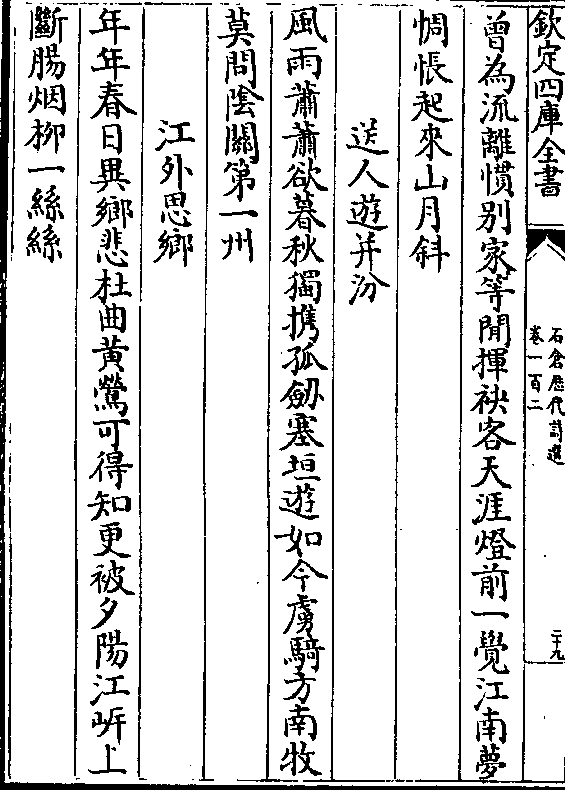 欽定四庫全書
石倉歴代詩選
卷一百二
二十九
曾為流離慣别家等閒揮袂客天涯燈前一覺江南夢
惆悵起來山月斜
送人遊并汾
風雨蕭蕭欲暮秋獨携孤劔塞垣遊如今虜騎方南牧
莫問隂闗第一州
江外思鄉
年年春日異鄉悲杜曲黄鶯可得知更被夕陽江岍上
斷腸烟柳一絲絲